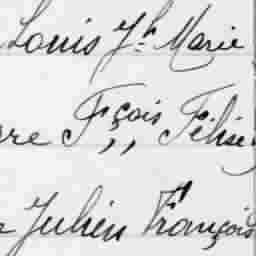 Louis Jh Marie
re Fçois Félise
Julien François